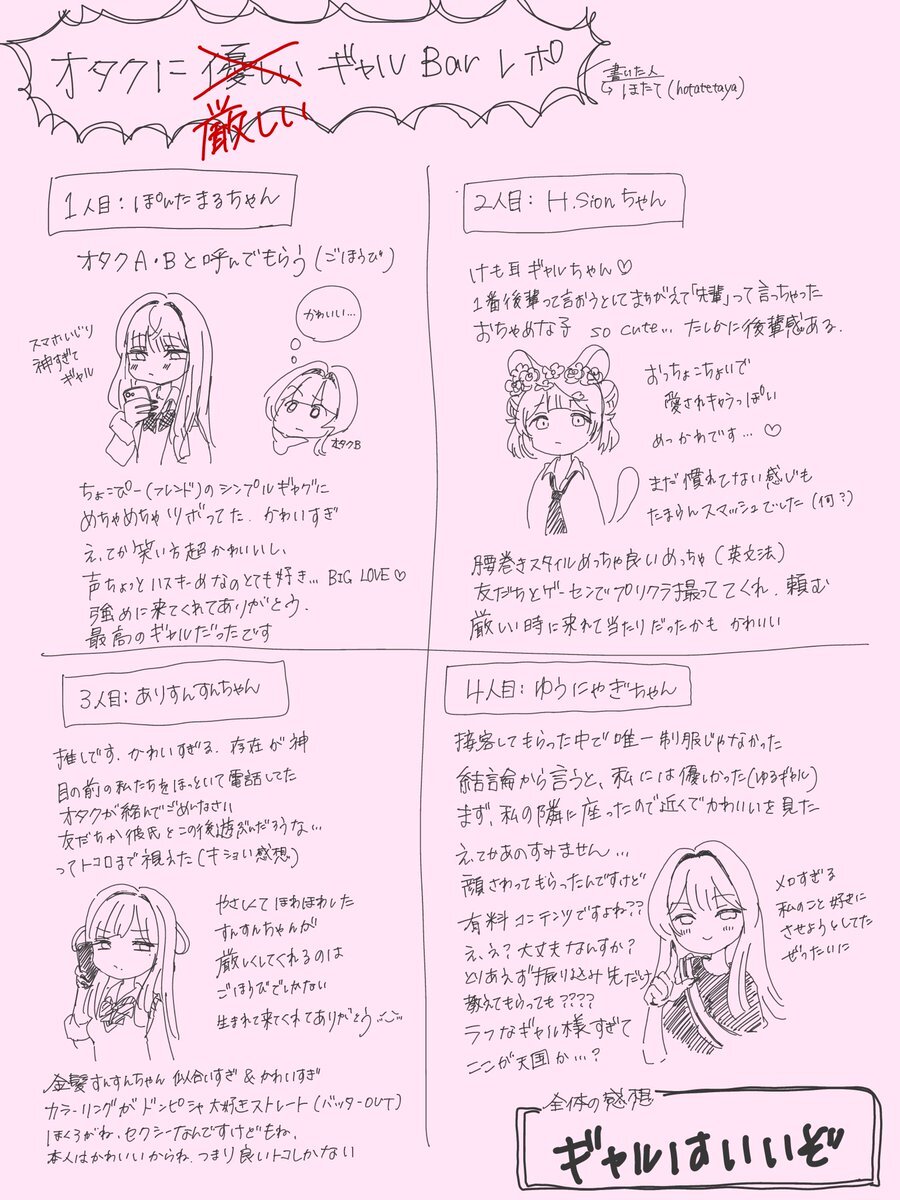 オタクに優しいギャルBarレポ
厳しい
書いた人
↳ ほたて(hotatetaya)
1人目：ぽんたまるちゃん
オタクA・Bと呼んでもらう(ごほうび)
スマホいじり
神すぎて
ギャル
かわいい…
オタクB
ちょこぴー(フレンド)のシンプルギャグに
めちゃめちゃツボってた．かわいすぎ
え、てか笑い方超かわいいし、
声ちょっとハスキーめなのとても好き…BIG LOVE♡
強めに来てくれてありがとう．
最高のギャルだったです
2人目：H.Sionちゃん
けも耳ギャルちゃん♡
1番後輩って言おうとしてまちがえて「先輩」って言っちゃった
おちゃめな子 so cute… たしかに後輩感ある．
おっちょこちょいで
愛されキャラっぽい
めっかわです…♡
まだ慣れてない感じも
たまらんスマッシュでした(何？)
腰巻きスタイルめっちゃ良いめっちゃ(英文法)
友だちとゲーセンでプリクラ撮っててくれ．頼む
厳しい時に来れて当たりだったかも かわいい
3人目：ありすんすんちゃん
推しです．かわいすぎる．存在が神
目の前の私たちをほっといて電話してた
オタクが絡んでごめんなさい
友だちか彼氏とこの後遊ぶんだろうな…
ってトコロまで視えた(キショい感想)
やさしくてほわほわした
すんすんちゃんが
厳しくしてくれるのは
ごほうびでしかない
生まれて来てくれてありがとう
金髪すんすんちゃん 似合いすぎ＆かわいすぎ
カラーリングがドンピシャ大好きストレート(バッターOUT)
ほくろがね、セクシーなんですけどもね、
本人はかわいいからね．つまり良いトコしかない
4人目：ゆうにゃぎちゃん
接客してもらった中で唯一制服じゃなかった
結論から言うと、私には優しかった(ゆるギャル)
まず、私の隣に座ったので近くでかわいいを見た
え、てかあのすみません…
顔さわってもらったんですけど
有料コンテンツですよね？？
え、え？大丈夫なんすか？
とりあえず振り込み先だけ
教えてもらっても？？？？
ラフなギャル様すぎて
ここが天国か…？
メロすぎる
私のこと好きに
させようとしてた
ぜったいに
全体の感想
ギャルはいいぞ